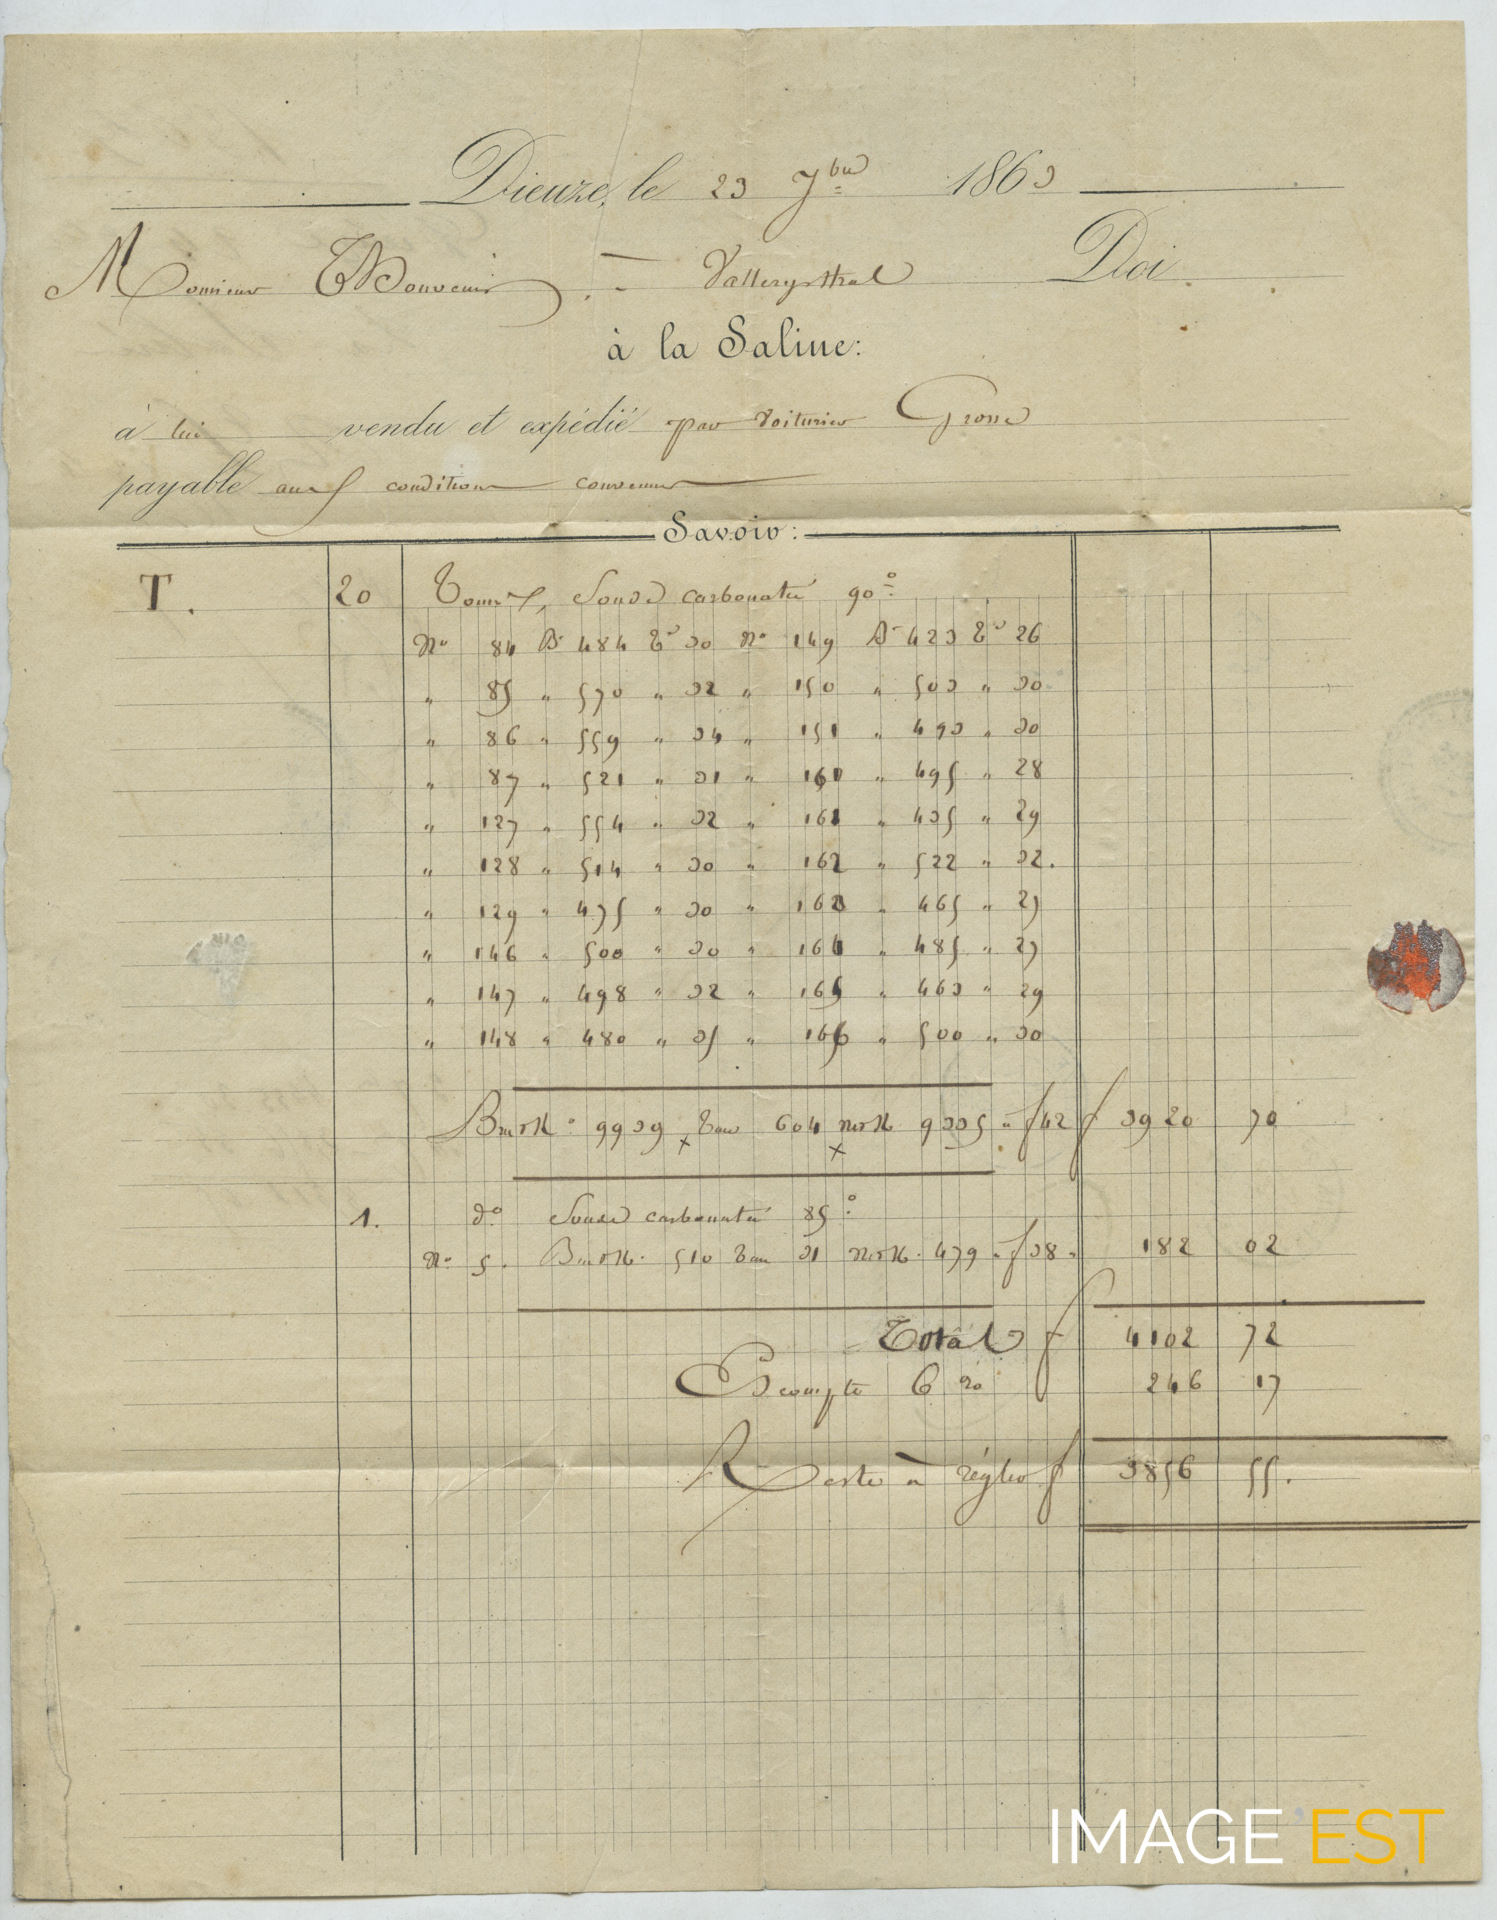 Dieuze, le 23 7bre 1863
Monsieur Thouvenin à Vallerysthal Doi
à la Saline:
à lui vendu et expédié par voiturier Grosse
payable aux conditions convenues
Savoir:
T. 20 Tonnx, Soude carbonatée 90°
No 84 Bt 484 Te 30 No 149 Bt 423 Te 26
" 85 " 570 " 32 " 150 " 503 " 30
" 86 " 559 " 34 " 151 " 493 " 30
" 87 " 521 " 31 " 160 " 495 " 28
" 127 " 554 " 32 " 161 " 435 " 29
" 128 " 514 " 30 " 162 " 522 " 32.
" 129 " 475 " 30 " 163 " 465 " 27
" 146 " 500 " 30 " 164 " 485 " 27
" 147 " 498 " 32 " 165 " 463 " 29
" 148 " 480 " 35 " 166 " 500 " 30
Brut K° 9939 Tare 604 net K 9335 à f 42 f 3920 70
1. d° Soude carbonatée 85°
No 5. Brut K. 510 Tare 31 net K. 479 à f 38 " 182 02
Total f 4102 72
Escompte 6 % 246 17
Reste à régler f 3856 55.
IMAGE EST